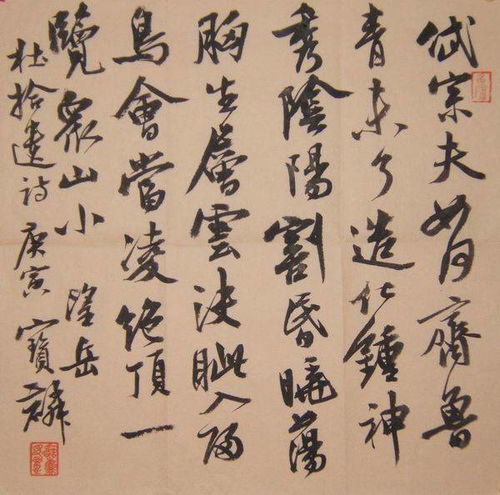 岱宗夫如何齊魯
青未了造化鍾神
秀陰陽割昏曉蕩
胸生層雲決眥入歸
鳥會當凌絕頂一
覽眾山小 岳
杜拾遺詩 庚寅 寶麟